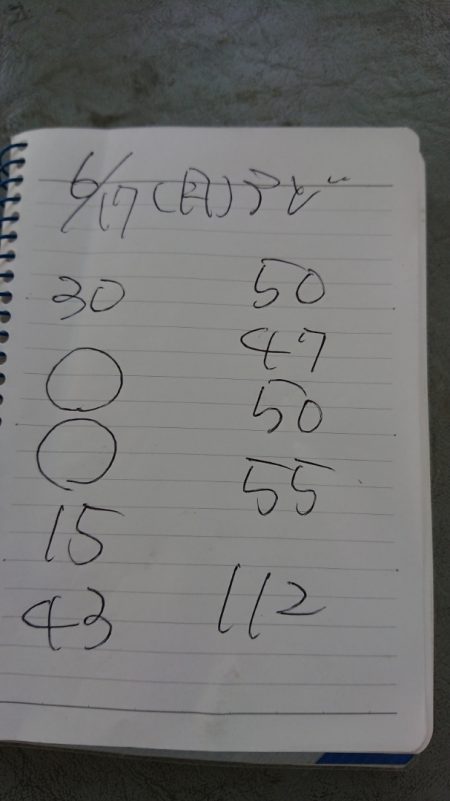 6/17 (月)
30 50
○ 47
○ 50
15 55
43 112